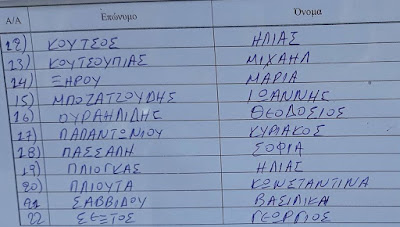 Α/Α Επώνυμο Όνομα
12) ΚΟΥΤΣΟΣ ΗΛΙΑΣ
13) ΚΟΥΤΣΟΥΠΙΑΣ ΜΙΧΑΗΛ
14) ΞΑΡΟΥ ΜΑΡΙΑ
15) ΜΠΟΖΑΤΖΟΥΔΗΣ ΙΩΑΝΝΗΣ
16) ΟΥΡΑΗΛΙΔΗΣ ΘΕΟΔΟΣΙΟΣ
17) ΠΑΠΑΝΤΩΝΙΟΥ ΚΥΡΙΑΚΟΣ
18) ΠΑΣΣΑΛΗ ΣΟΦΙΑ
19) ΠΛΙΟΓΚΑΣ ΗΛΙΑΣ
20) ΠΛΙΟΥΤΑ ΚΩΝΣΤΑΝΤΙΝΑ
21 ΣΑΒΒΙΔΟΥ ΒΑΣΙΛΙΚΗ
22 ΣΕΞΤΟΣ ΓΕΩΡΓΙΟΣ